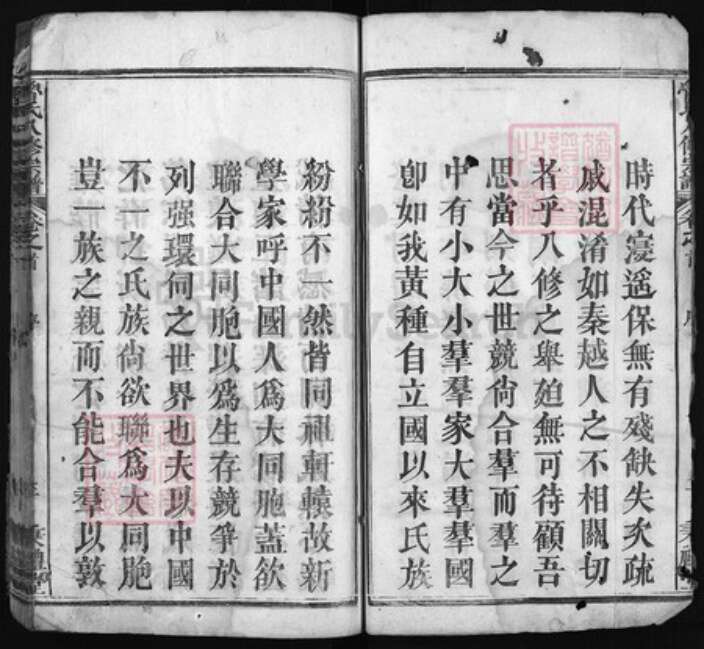 時代寖遥保無有殘缺失次疏
戚混淆如秦越人之不相關切
者乎八修之舉廹無可待顧吾
思當今之世競尙合羣而羣之
中有小大小羣羣家大羣羣國
卽如我黃種自立國以來氏族
紛紛不一然皆同祖軒轅故新
學家呼中國人爲大同胞蓋欲
聯合大同胞以爲生存競爭於
列强環伺之世界也夫以中國
不一之氏族尙欲聯爲大同胞
豈一族之親而不能合羣以敦
氏八修宗譜 卷之首 序